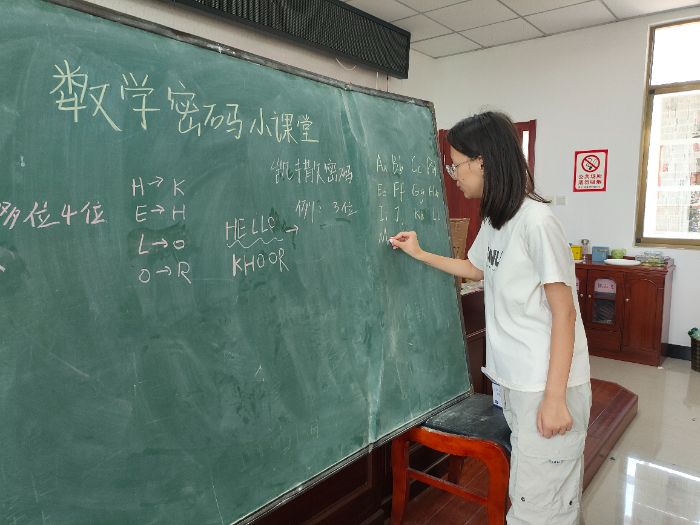 数学密码小课堂
凯撒密码
例1：3位
移位4位
H→K
E→H
L→O
O→R
HELLO→
KHOOR
Aa Bb Cc Dd
Ee Ff Gg Hh
Ii Jj Kk Ll
M